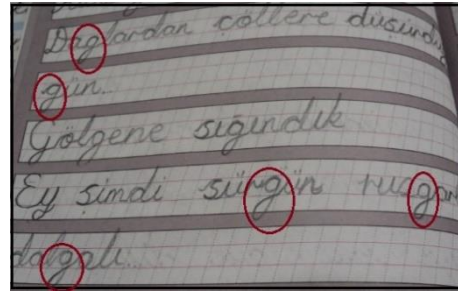 Dağlardan çöllere düşürdü
gün..
Gölgene sığındık
Ey şimdi sürgün
dalgalı...